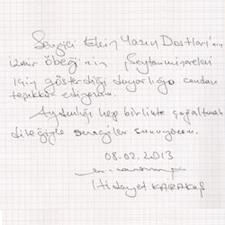 Sevgili Ekin Yazın Dostları'nın
İzmir Öbeği'nin Şeytanminareleri
için gösterdiği duyarlığa candan
teşekkür ediyorum.
Aydınlığı hep birlikte çoğaltmak
dileğiyle sevgiler sunuyorum.
08.02.2013
Hidayet KARAKUŞ